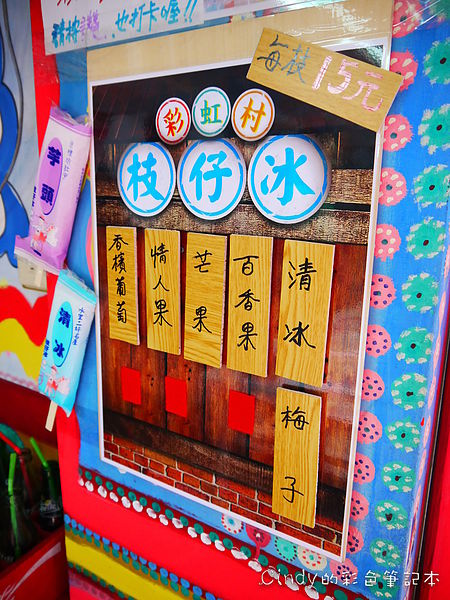 精按讚，也打卡喔!!
每枝15元
彩虹村
枝仔冰
香檳葡萄
情人果
芒果
百香果
清冰
梅子
芋頭
清冰
Cindy的彩色筆記本